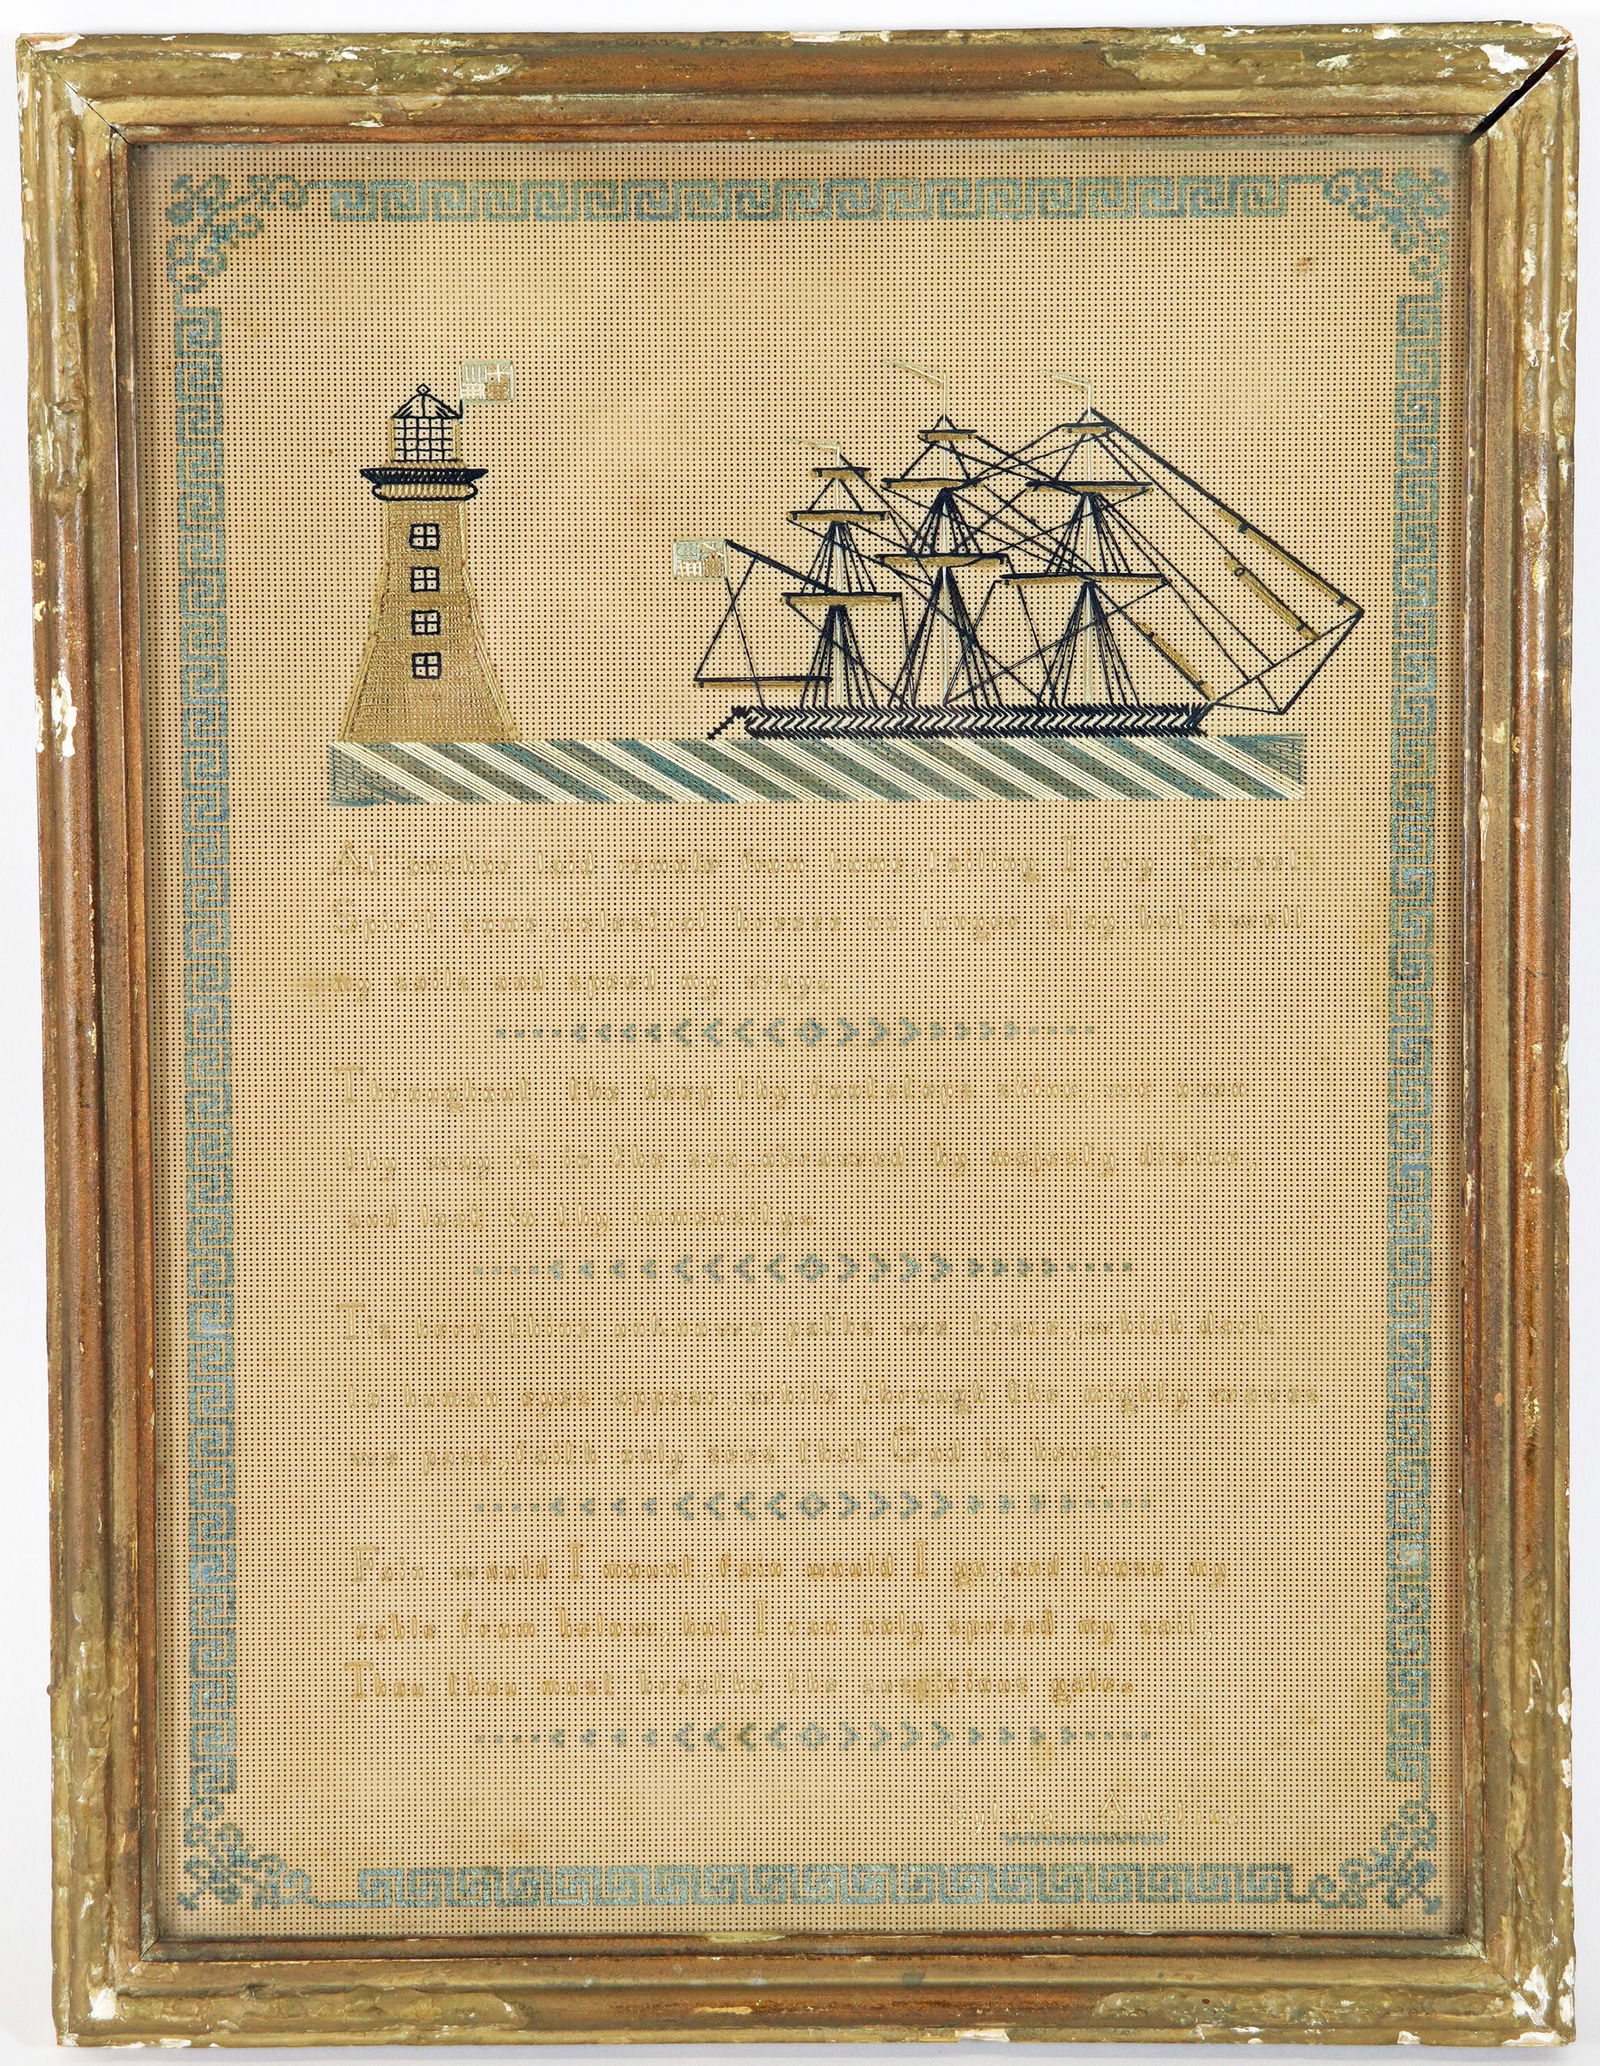 At anchor laid remote from home, toiling I cry Sweet
Spirit come, celestial breeze no longer stay, but swell
my sails and speed my way.
Throughout the deep thy footsteps shine, we own
thy way is in the sea, oerawed by majesty divine,
and lost in thy immensity.
Tis here thine unknown paths we trace, which dark
to human eyes appear, while through the mighty waves
we pass, faith only sees that God is here.
Fain would I mount, fain would I go, and loose my
cable from below, but I can only spread my sail,
Thou thou must breathe the auspicious gale.
Sylvia